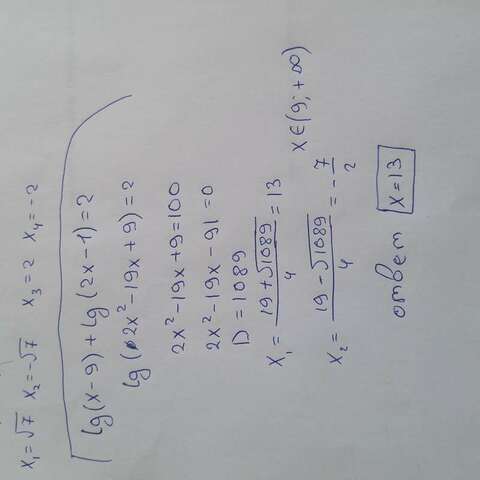 x₁=√7 x₂=-√7 x₃=2 x₄=-2
lg(x-9)+lg(2x-1)=2
lg(2x²-19x+9)=2
2x²-19x+9=100
2x²-19x-91=0
D=1089
x₁=(19+√1089)/4=13
x∈(9;+∞)
x₂=(19-√1089)/4=-7/2
ответ x=13